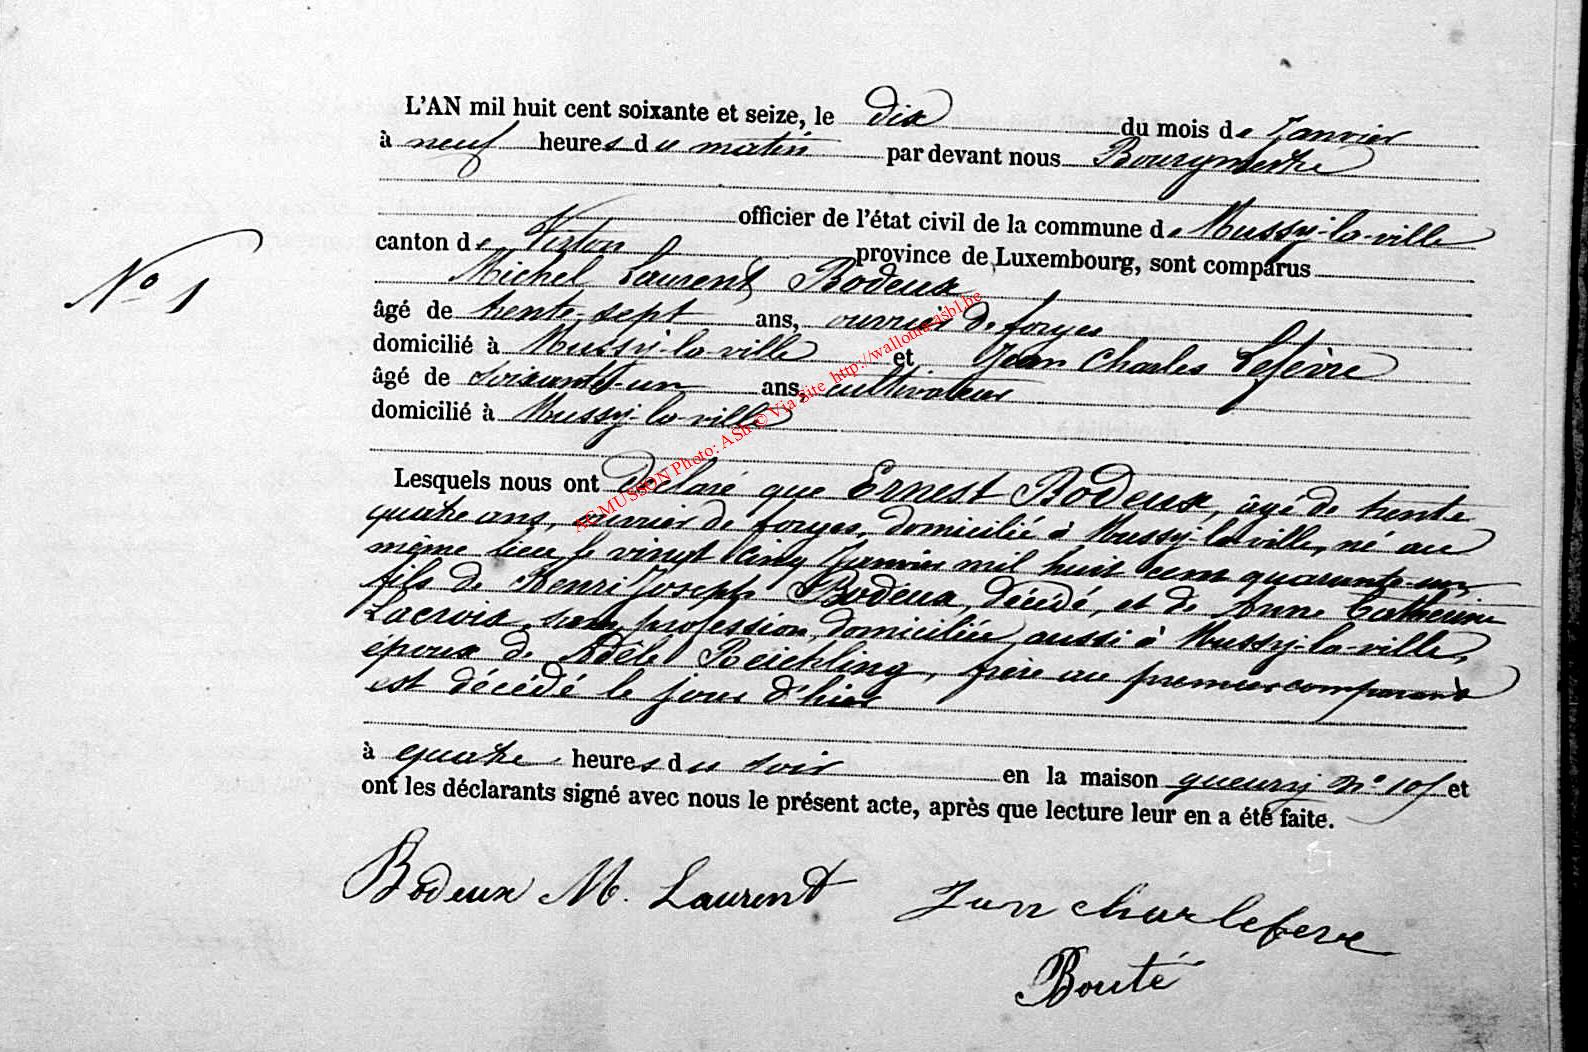 L'AN mil huit cent soixante et seize, le dix du mois de Janvier
à neuf heures du matin par devant nous Bourgmestre
officier de l'état civil de la commune de Mussy-la-ville
canton de Virton province de Luxembourg, sont comparus
Michel Laurent Bodeux
N° 1
âgé de trente-sept ans, ouvrier de forges
domicilié à Mussy-la-ville et Jean Charles Lefèvre
âgé de soixante-un ans, cultivateur
domicilié à Mussy-la-ville
Lesquels nous ont déclaré que Ernest Bodeux, âgé de trente
quatre ans, ouvrier de forges, domicilié à Mussy-la-ville, né au
même lieu le vingt cinq Janvier mil huit cent quarante-un,
fils de Henri Joseph Bodeux, décédé, et de Anne Catherine
Lacroix, sans profession, domiciliée aussi à Mussy-la-ville,
époux de Adèle Reichling, frère au premier comparant
est décédé le jour d'hier
à quatre heures du soir en la maison gueury N° et
ont les déclarants signé avec nous le présent acte, après que lecture leur en a été faite.
Bodeux M. Laurent Jean char lefevre
Bouté
AEMUSSON Photo: ASb © Via Site http://wallonia-asbl.be